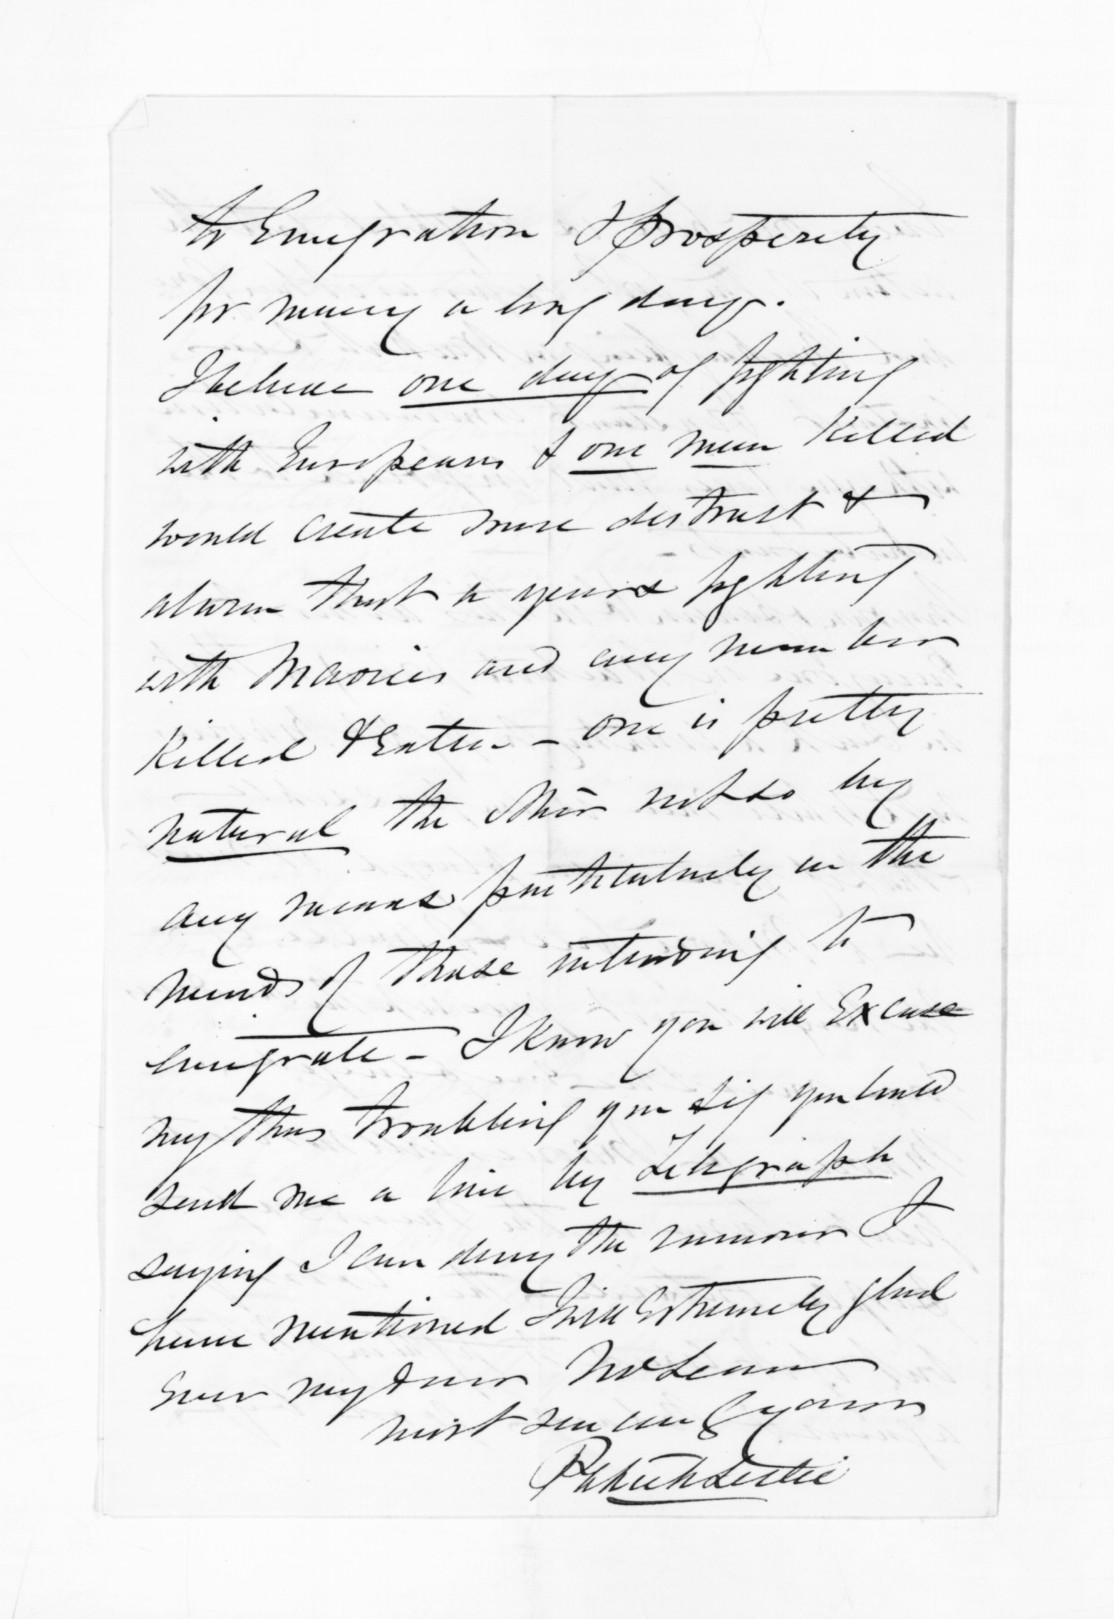 to Emigration & prosperity
for many a long day.
I believe one day of fighting
with Europeans & one man Killed
would create more distrust &
alarm that a years fighting
with Maories and any number
Killed & Eaten - one is pretty
natural the other not so by
any means particularly in the
minds of those intending to
emigrate - I know you will Excuse
my thus troubling you & if you could
send me a line by Telegraph
saying I can deny the rumour I
have mentioned I will Extremely glad
Ever my dear McLean
most sincerely yours
Patrick Leslie